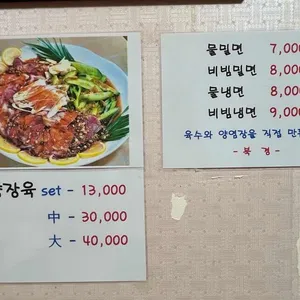 물밀면 7,00
비빔밀면 8,000
물냉면 8,000
비빔냉면 9,000
육수와 양념장을 직접 만
- 북 경 -
장육 set - 13,000
中 - 30,000
大 - 40,000